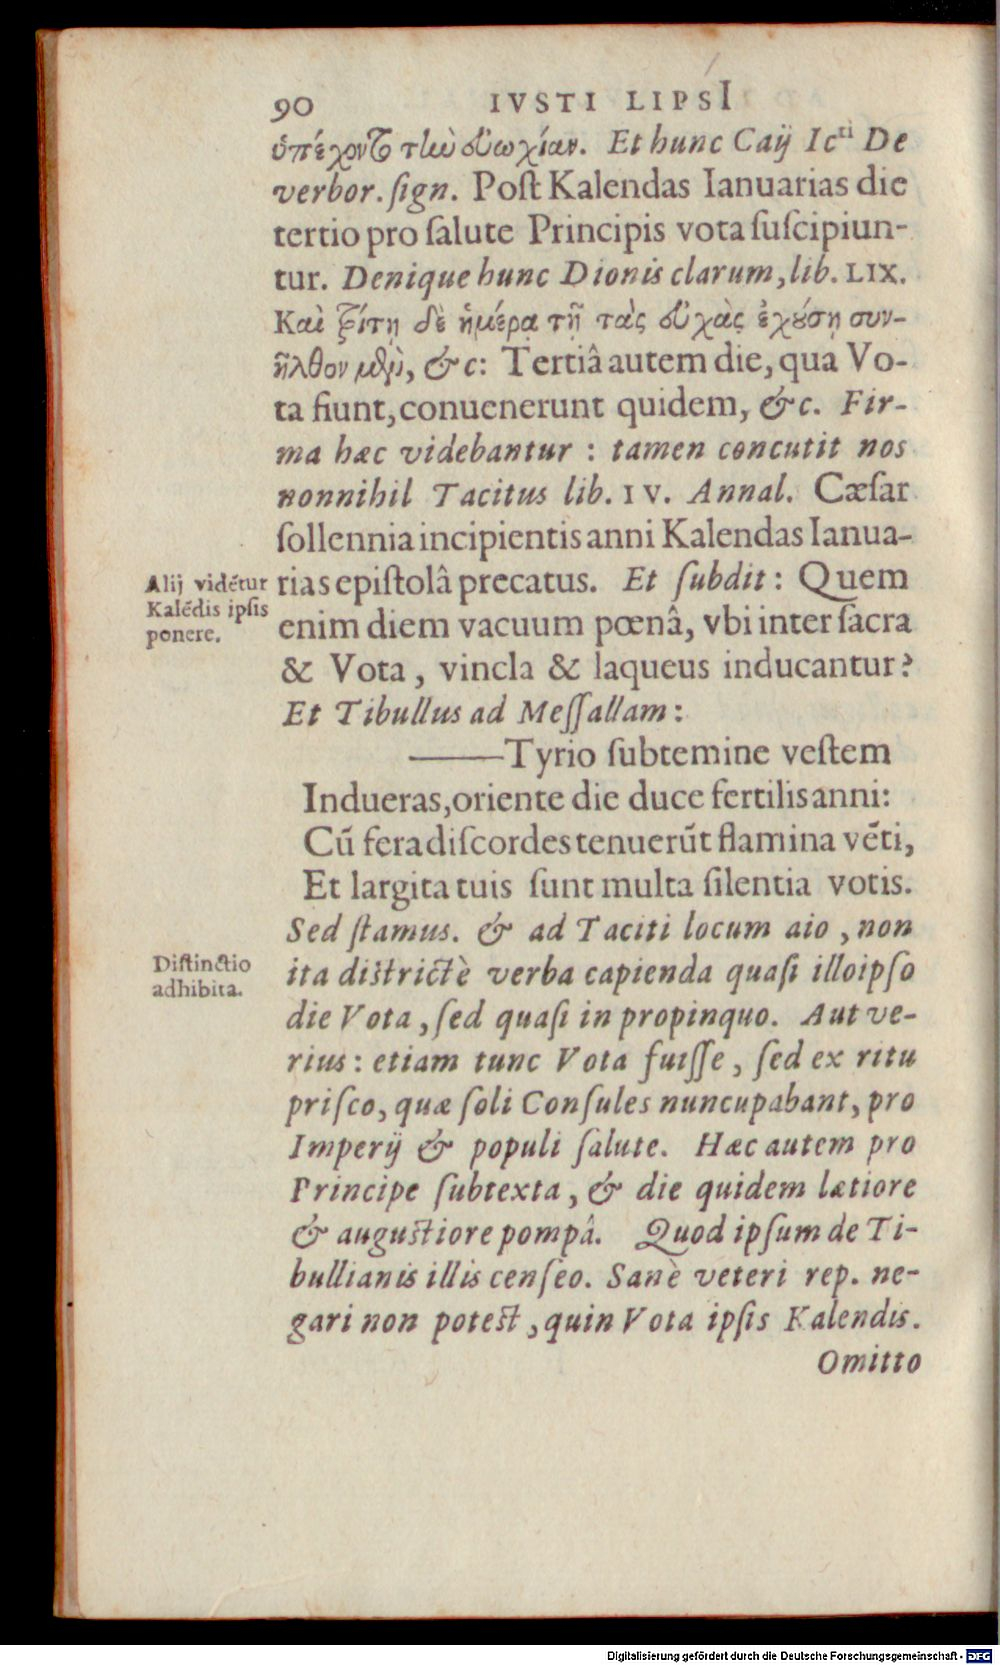 90 IVSTI LIPSI
ὑπέχοντος τὴν εὐωχίαν. Et hunc Caij Ic^ti De
verbor. ſign. Poſt Kalendas Ianuarias die
tertio pro ſalute Principis vota ſuſcipiun-
tur. Denique hunc Dionis clarum, lib. LIX.
Καὶ τρίτῃ δὲ ἡμέρᾳ τῇ τὰς εὐχὰς ἐχούσῃ συν-
ῆλθον μὲν, &c: Tertiâ autem die, qua Vo-
ta fiunt, conuenerunt quidem, &c. Fir-
ma hæc videbantur : tamen concutit nos
nonnihil Tacitus lib. IV. Annal. Cæſar
ſollennia incipientis anni Kalendas Ianua-
rias epiſtolâ precatus. Et ſubdit: Quem
enim diem vacuum pœnâ, vbi inter ſacra
& Vota, vincla & laqueus inducantur?
Et Tibullus ad Meſſallam:
——Tyrio ſubtemine veſtem
Indueras, oriente die duce fertilis anni:
Cū fera diſcordes tenuerūt flamina vēti,
Et largita tuis ſunt multa ſilentia votis.
Sed ſtamus. & ad Taciti locum aio, non
ita diſtrictè verba capienda quaſi illoipſo
die Vota, ſed quaſi in propinquo. Aut ve-
rius: etiam tunc Vota fuiſſe, ſed ex ritu
priſco, quæ ſoli Conſules nuncupabant, pro
Imperij & populi ſalute. Hæc autem pro
Principe ſubtexta, & die quidem lætiore
& auguſtiore pompâ. Quod ipſum de Ti-
bullianis illis cenſeo. Sanè veteri rep. ne-
gari non poteſt, quin Vota ipſis Kalendis.
Omitto
Alij vidētur
Kalēdis ipſis
ponere.
Diſtinctio
adhibita.
Digitalisierung gefördert durch die Deutsche Forschungsgemeinschaft - DFG